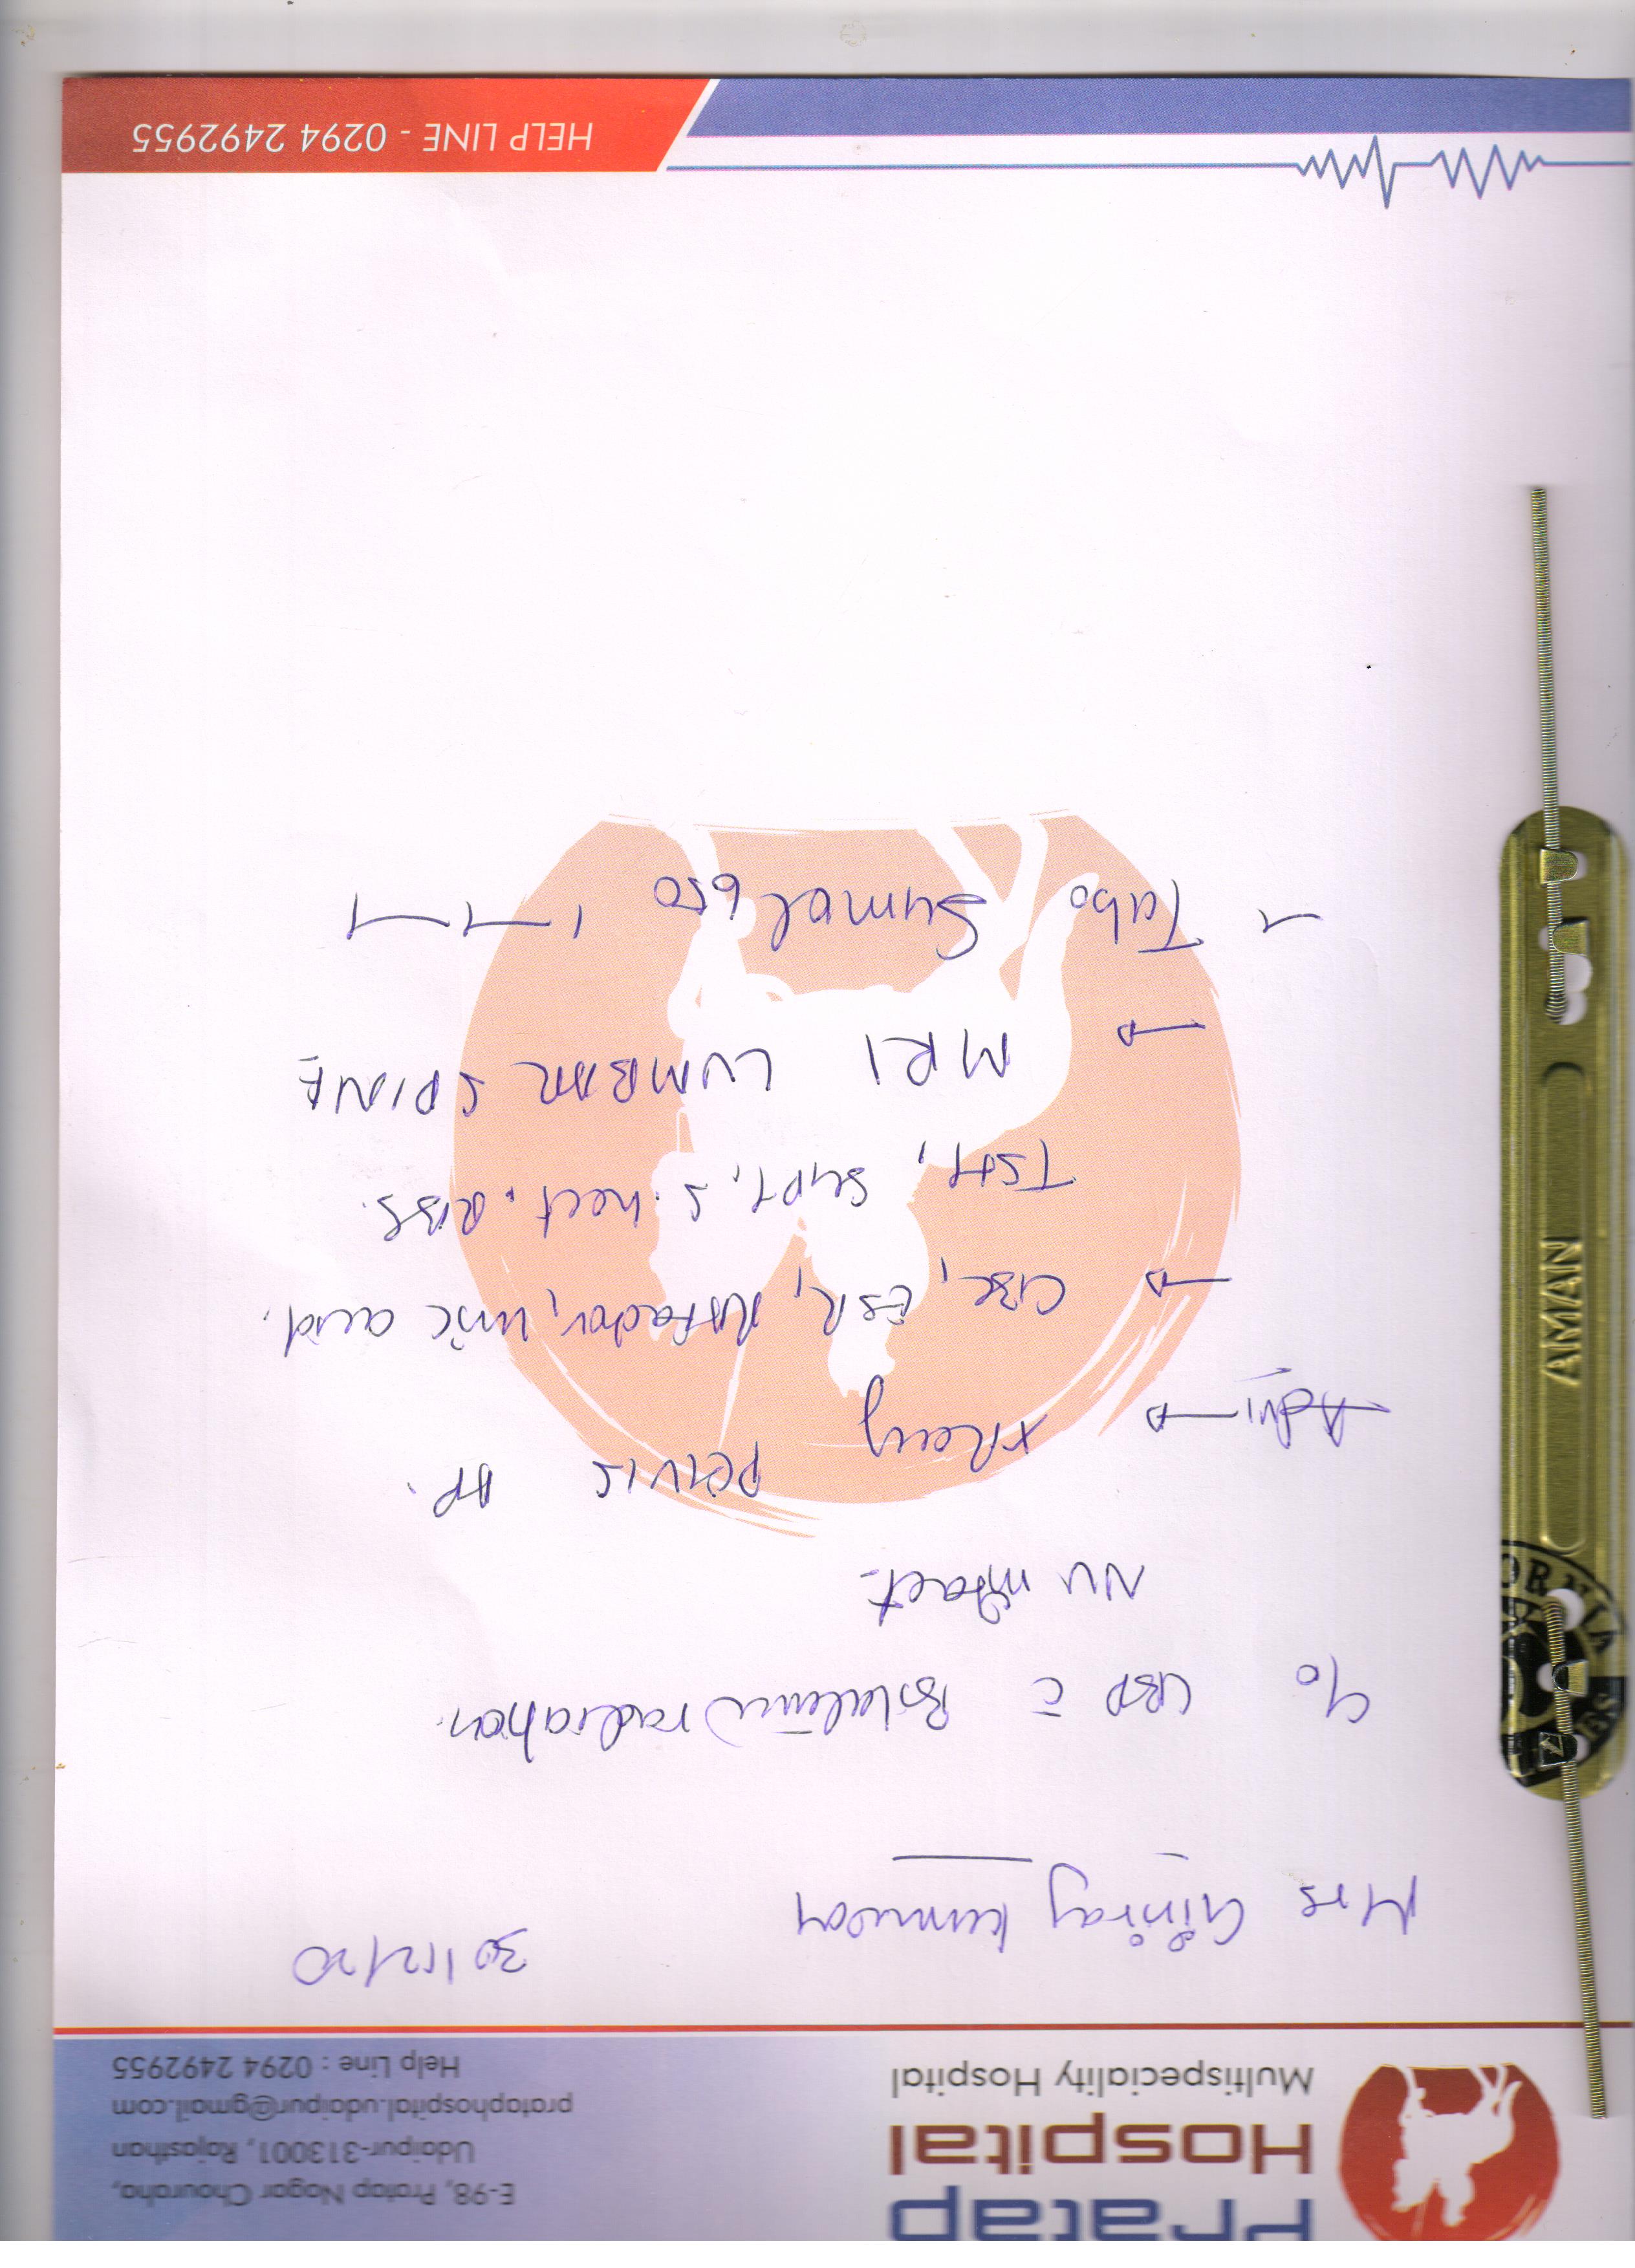 Pratap
Hospital
Multispeciality Hospital
E-98, Pratap Nagar Chouraha,
Udaipur-313001, Rajasthan
prataphospital.udaipur@gmail.com
Help Line : 0294 2492955
30/12/20
Mrs
C/o LBP c̄ radiation.
NV intact.
Advi → xRay PELVIS AP.
→ CBC, ESR, RA factor, uric acid.
TSH, SGPT, S. RBS.
→ MRI LUMBAR SPINE
Tab. Sumol 650 1-1-1
HELP LINE - 0294 2492955
AMAN